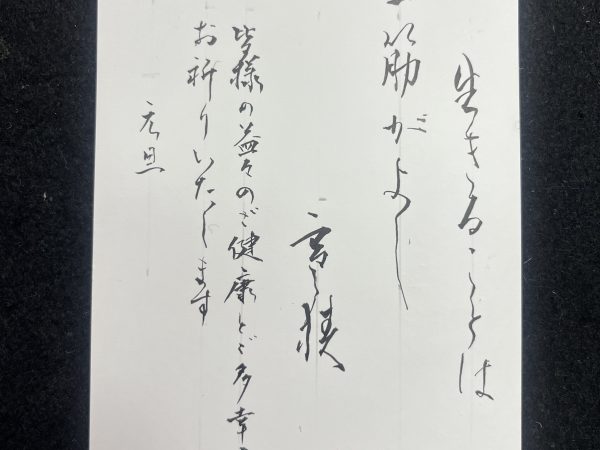 生きることは
一筋がよし
寒椿
皆様の益々のご健康とご多幸
お祈りいたします
元旦